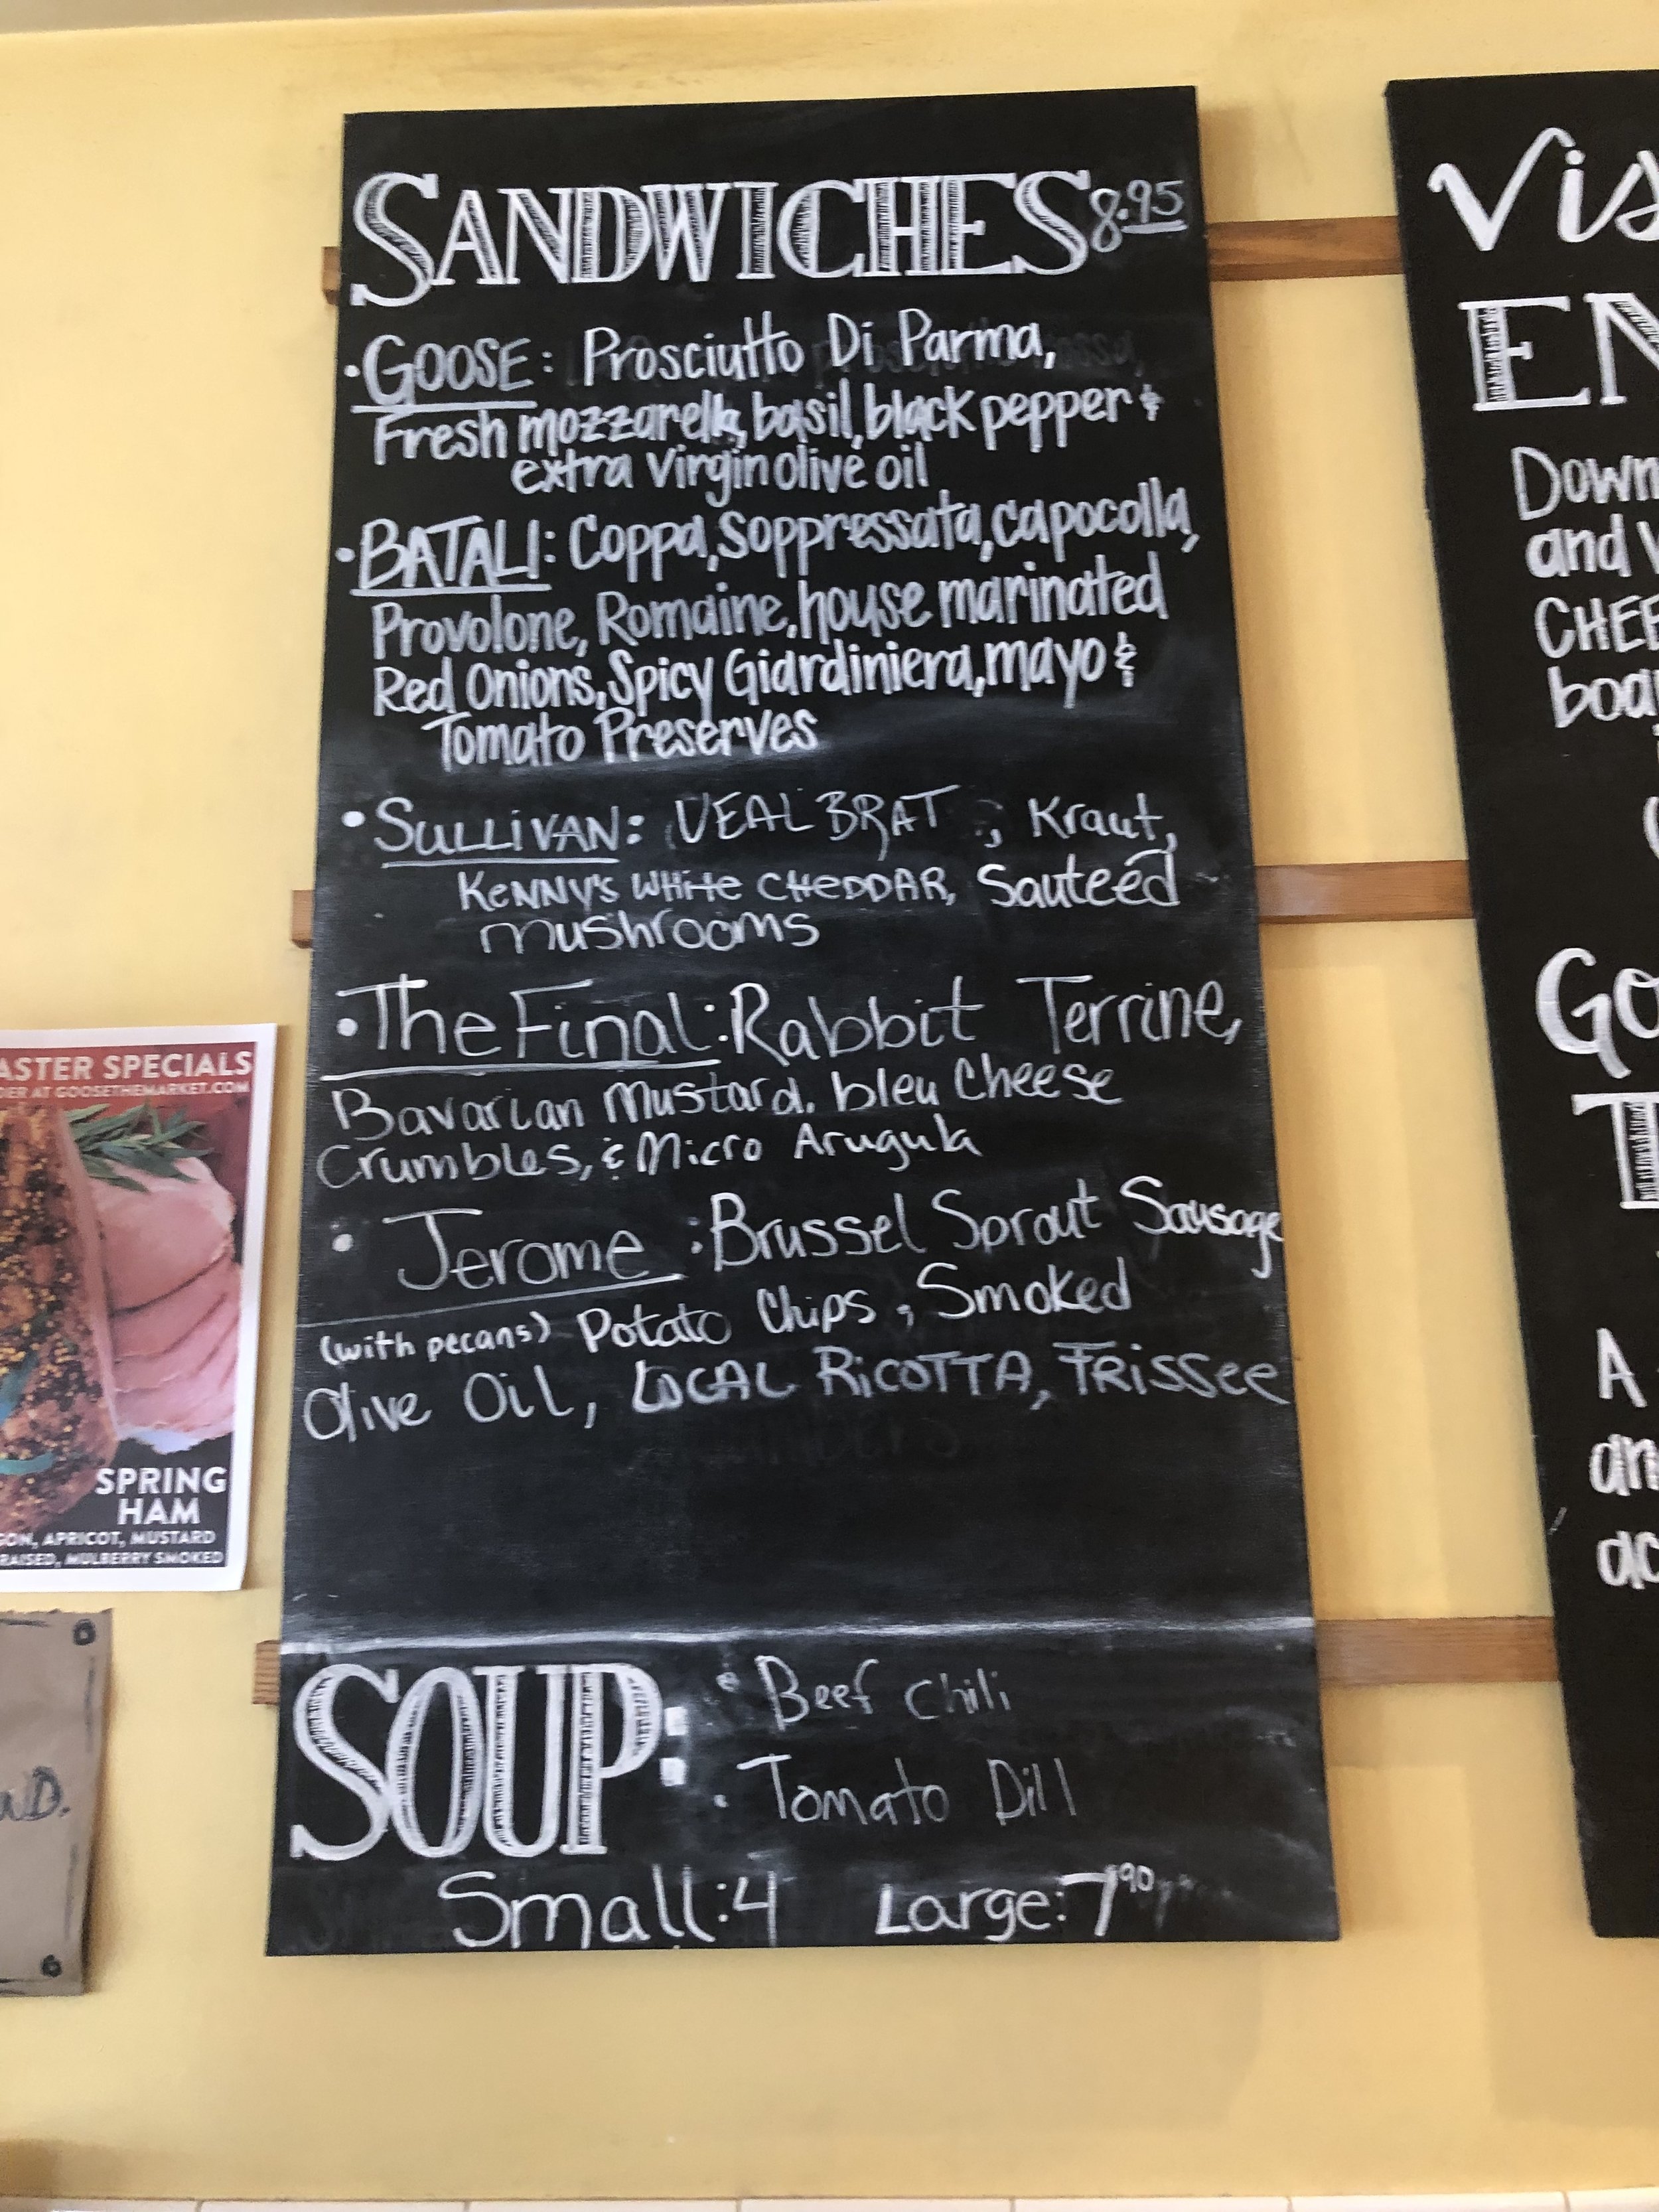 SANDWICHES 8.95
• GOOSE: Prosciutto Di Parma,
Fresh mozzarella, basil, black pepper &
extra virgin olive oil
• BATALI: Coppa, Soppressata, capocolla,
Provolone, Romaine, house marinated
Red Onions, Spicy Giardiniera, mayo &
Tomato Preserves
• SULLIVAN: VEAL BRAT, Kraut,
KENNY'S WHITE CHEDDAR, Sauteed
mushrooms
• The Final: Rabbit Terrine,
Bavarian Mustard, bleu Cheese
Crumbles, & Micro Arugula
• Jerome: Brussel Sprout Sausage
(with pecans) Potato Chips, Smoked
Olive Oil, LOCAL RICOTTA, FRISSEE
SOUP: • Beef Chili
• Tomato Dill
Small: 4 Large: 7.90
ASTER SPECIALS
DER AT GOOSETHEMARKET.COM
SPRING
HAM
GON, APRICOT, MUSTARD
RAISED, MULBERRY SMOKED
Vis
EN
Down
and
CHEE
boar
Go
T
A
an
ac